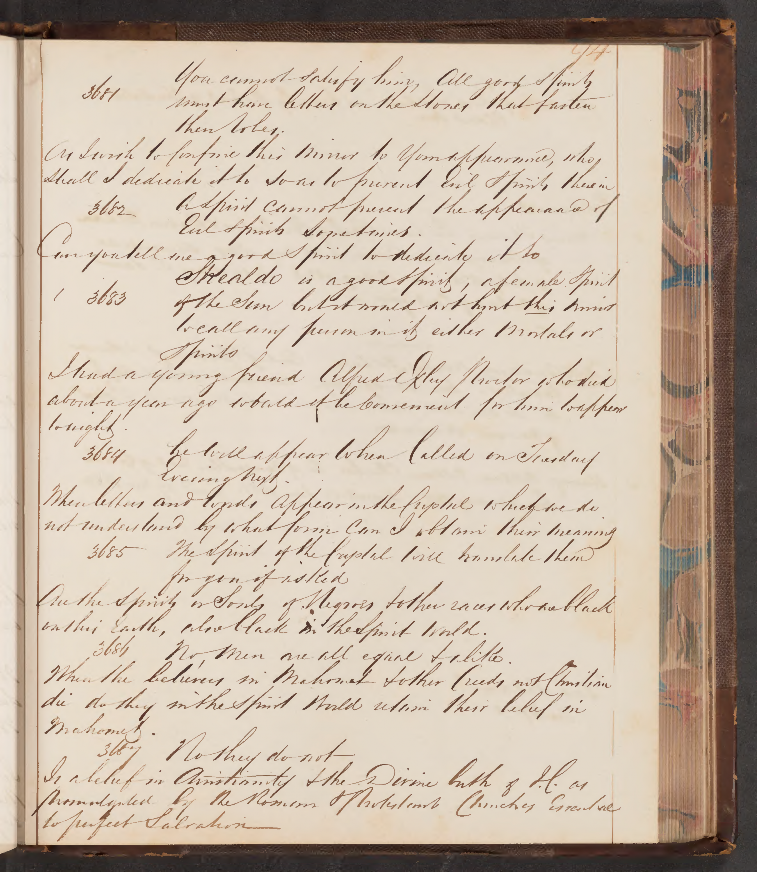 94
You cannot satisfy him, All good spirits
3681 must have letters on the stones that fasten
their robes.
As I wish to confine this Mirror to Your appearance, who
shall I dedicate it to so as to prevent Evil Spirits therein
3682 a Spirit cannot prevent the appearance of
Evil Spirits sometimes.
Can you tell me a good Spirit to dedicate it to
Skealdo is a good Spirit, a female Spirit
3683 of the Sun but it would not hurt this mirror
to call any person in it, either Mortals or
Spirits
I had a young friend Alfred Oxley Proctor who died
about a year ago would it be Convenient for him to appear
tonight.
3684 he will appear when Called on Tuesday
Evening Next.
When letters and words appear in the Crystal which we do
not understand by what form Can I obtain their meaning
3685 The Spirit of the Crystal will translate them
for you if asked
Are the Spirits or Souls of Negroes & other races who are black
on this Earth, also black in the Spirit World.
3686 No, Men are all equal & alike.
When the believers in Mahomet & other Creeds not Christian
die do they in the Spirit World retain their belief in
Mahomet.
3687 No they do not
Is a belief in Christianity & the Divine birth of J.C. as
promulgated by the Roman & Protestant Churches essential
to perfect Salvation